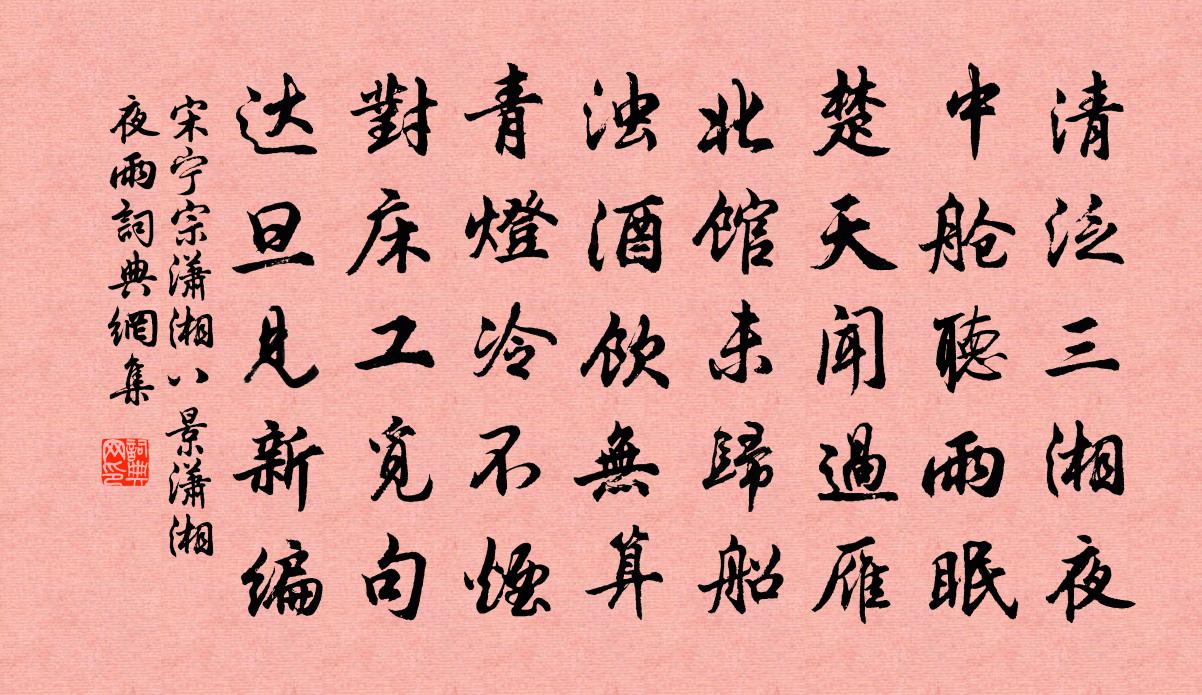 清泛三湘夜
中舱聽雨眠
楚天闻過雁
北馆未歸船
浊酒飲無算
青燈冷不煙
對床工覓句
达旦見新编
宋宁宗瀟湘八景瀟湘
夜雨詞典網集
詞典网印